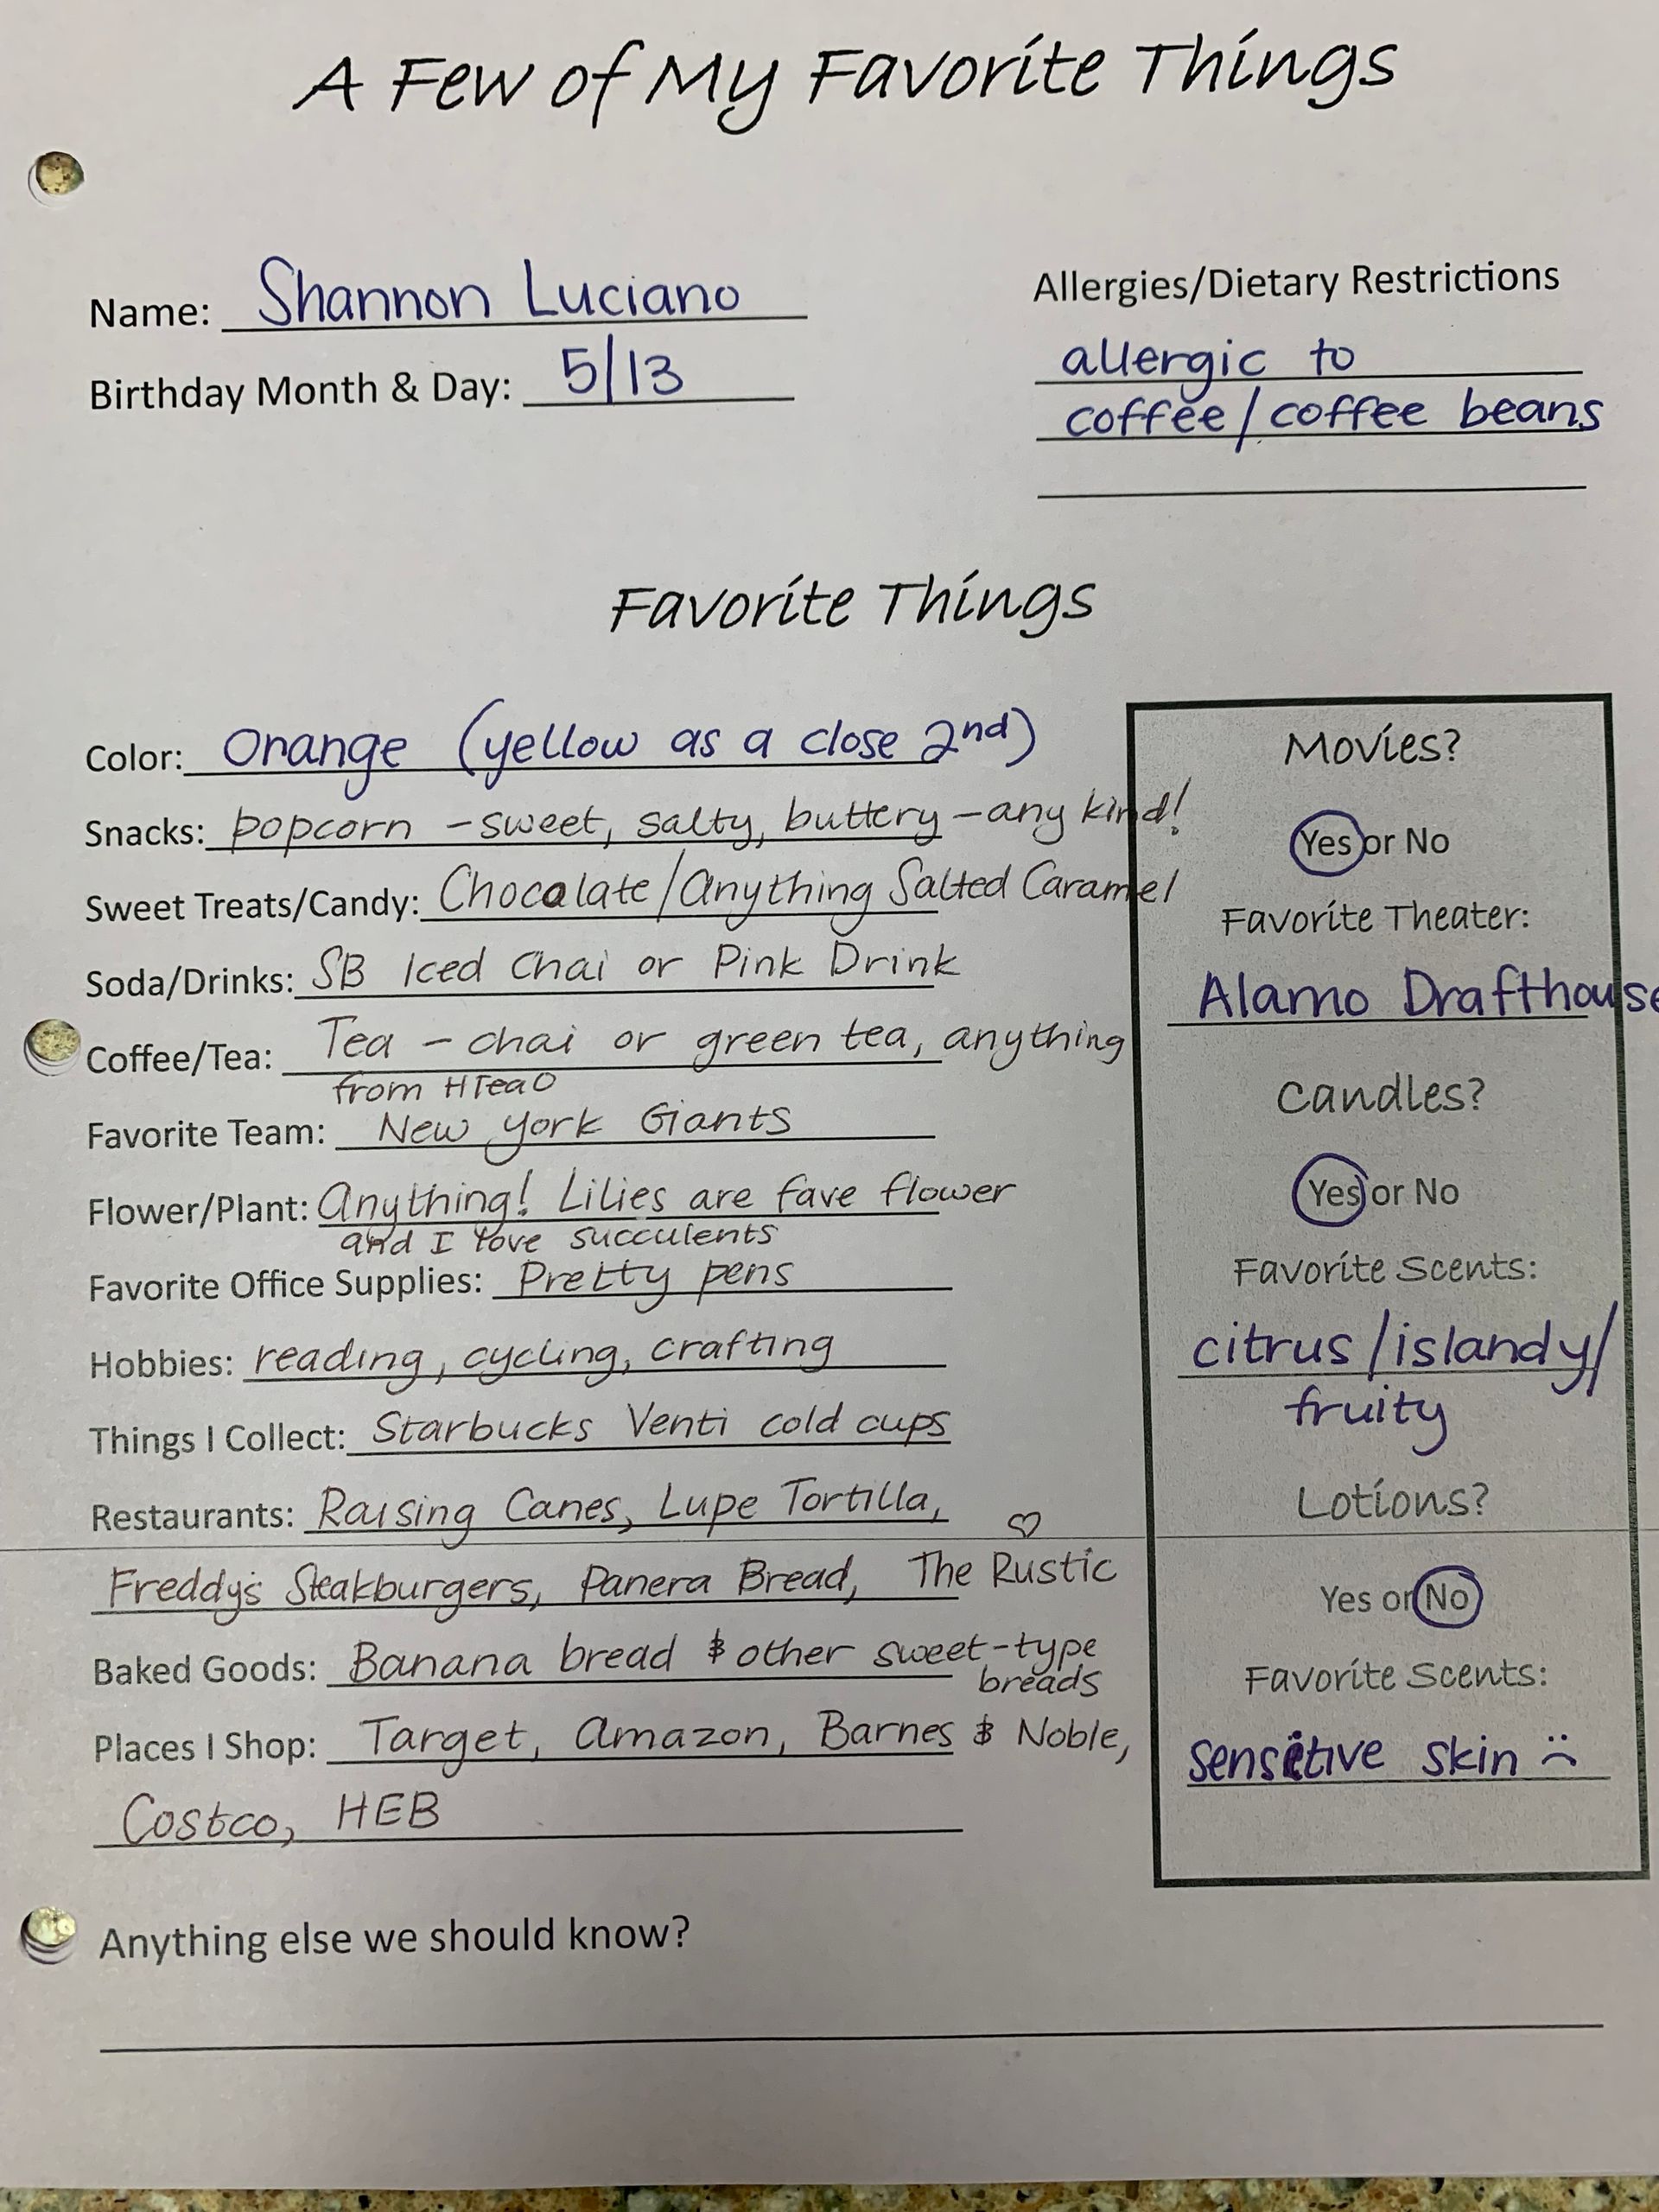 A Few of My Favorite Things
Name: Shannon Luciano
Birthday Month & Day: 5/13
Allergies/Dietary Restrictions
allergic to
coffee/coffee beans
Favorite Things
Color: Orange (yellow as a close 2nd)
Snacks: popcorn - sweet, salty, buttery - any kind!
Sweet Treats/Candy: Chocolate/Anything Salted Caramel
Soda/Drinks: SB Iced Chai or Pink Drink
Coffee/Tea: Tea - chai or green tea, anything
from HTeaO
Favorite Team: New York Giants
Flower/Plant: Anything! Lilies are fave flower
and I love succulents
Favorite Office Supplies: Pretty pens
Hobbies: reading, cycling, crafting
Things I Collect: Starbucks Venti cold cups
Restaurants: Raising Canes, Lupe Tortilla,
Freddy's Steakburgers, Panera Bread, The Rustic ♡
Baked Goods: Banana bread & other sweet-type
breads
Places I Shop: Target, Amazon, Barnes & Noble,
Costco, HEB
Movies?
Yes or No
Favorite Theater:
Alamo Drafthouse
Candles?
Yes or No
Favorite Scents:
citrus/islandy/
fruity
Lotions?
Yes or No
Favorite Scents:
sensitive skin :(
Anything else we should know?